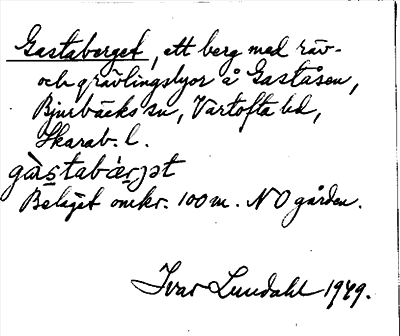 Gastaberget, ett berg med räv-
och grävlingslyor å Gaståsen,
Bjurbäcks sn, Vartofta hd,
Skarab. l.
Beläget omkr. 100 m. NO gården.
Ivar Lundahl 1949.